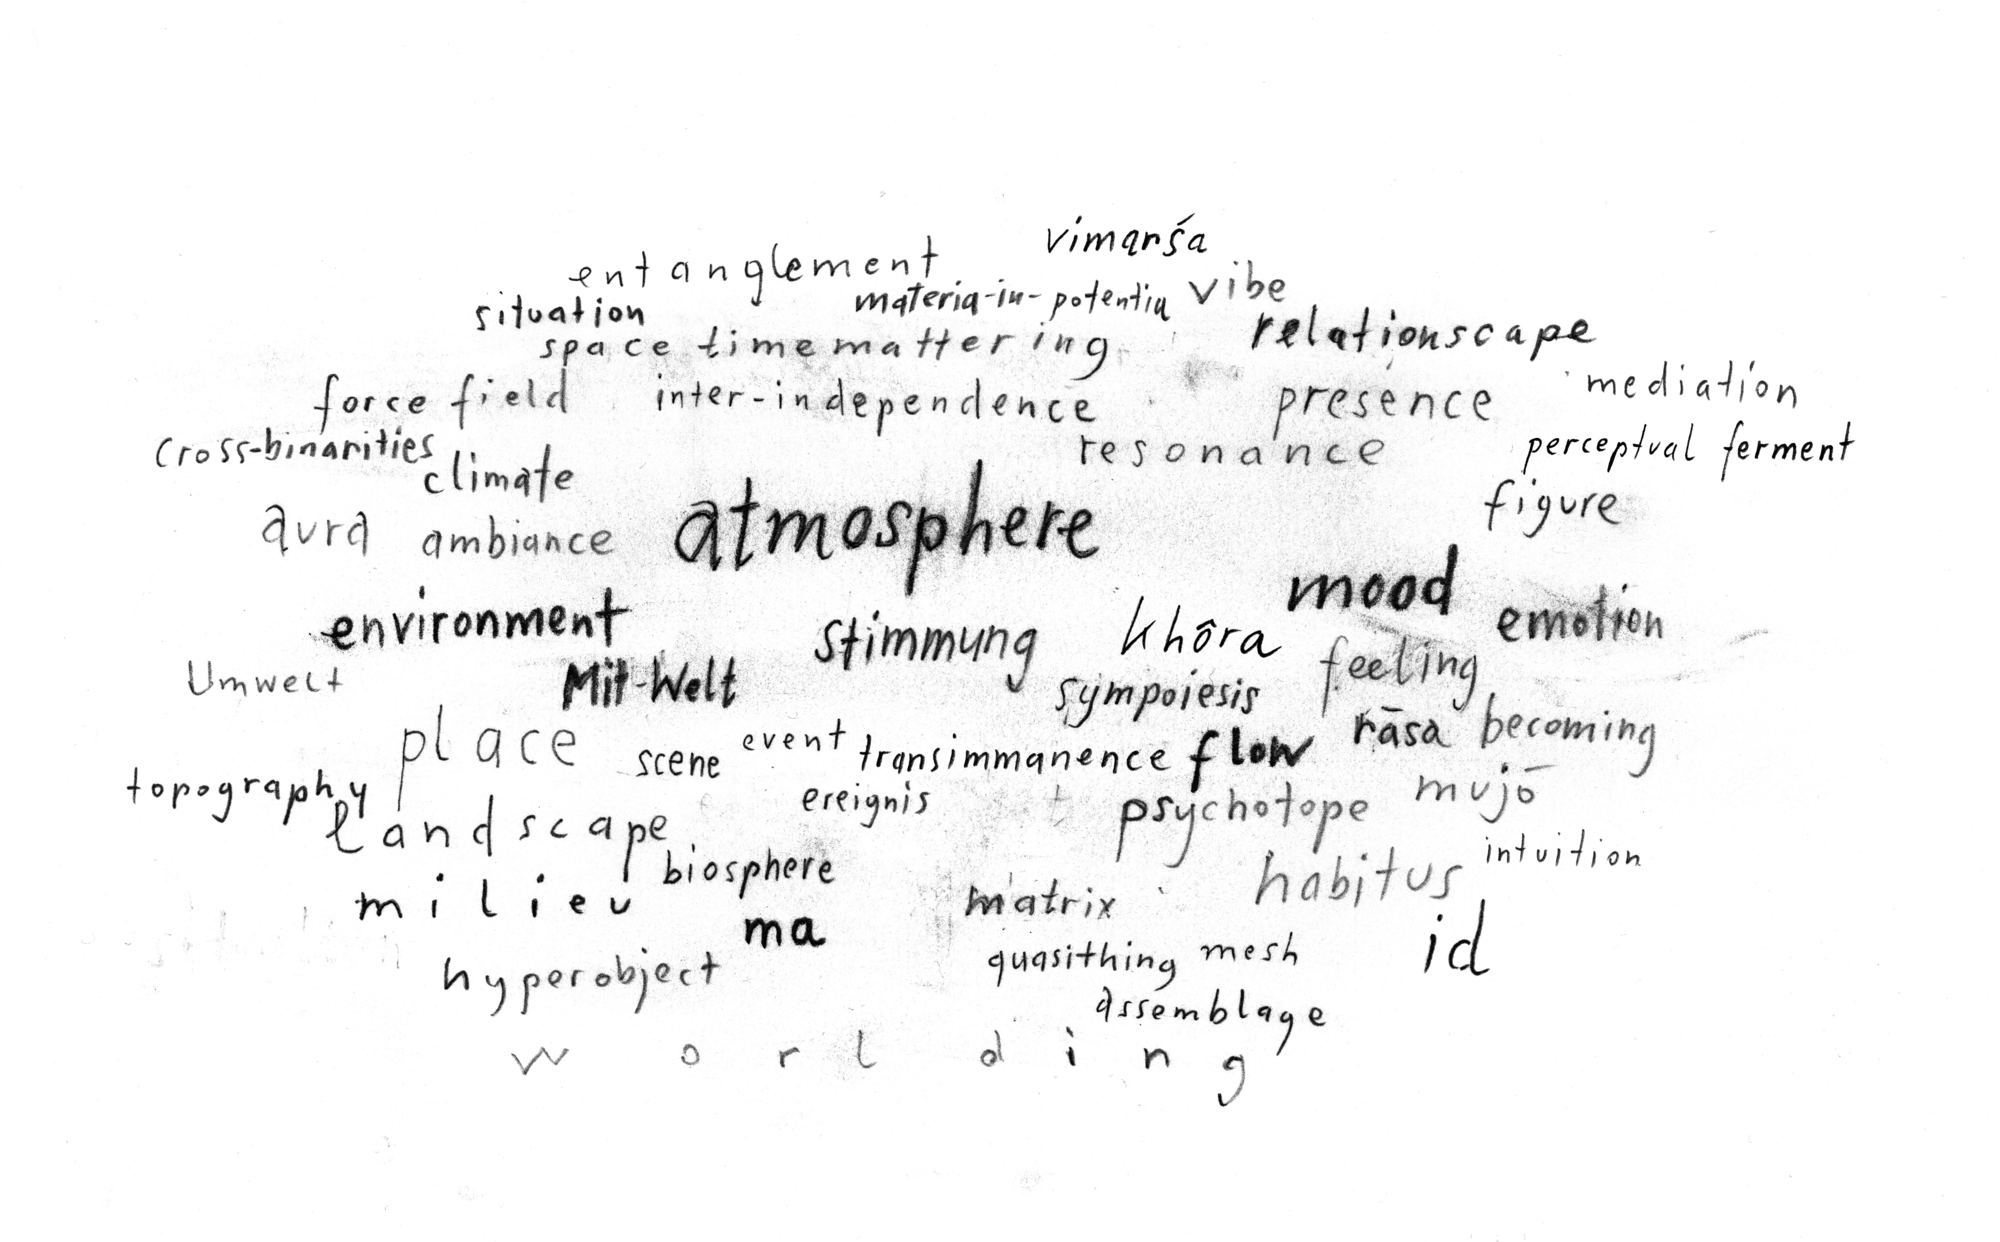 vimarśa
entanglement
materia-in-potentia vibe
situation
relationscape
space timemattering
mediation
force field inter-independence presence
cross-binarities resonance perceptual ferment
climate
figure
aura ambiance atmosphere
mood
environment stimmung khôra emotion
Umwelt Mit-Welt sympoiesis feeling
place scene event transimmanence flow rāsa becoming
topography ereignis psychotope mujō
landscape
biosphere habitus intuition
milieu matrix
ma id
hyperobject quasithing mesh
assemblage
worlding